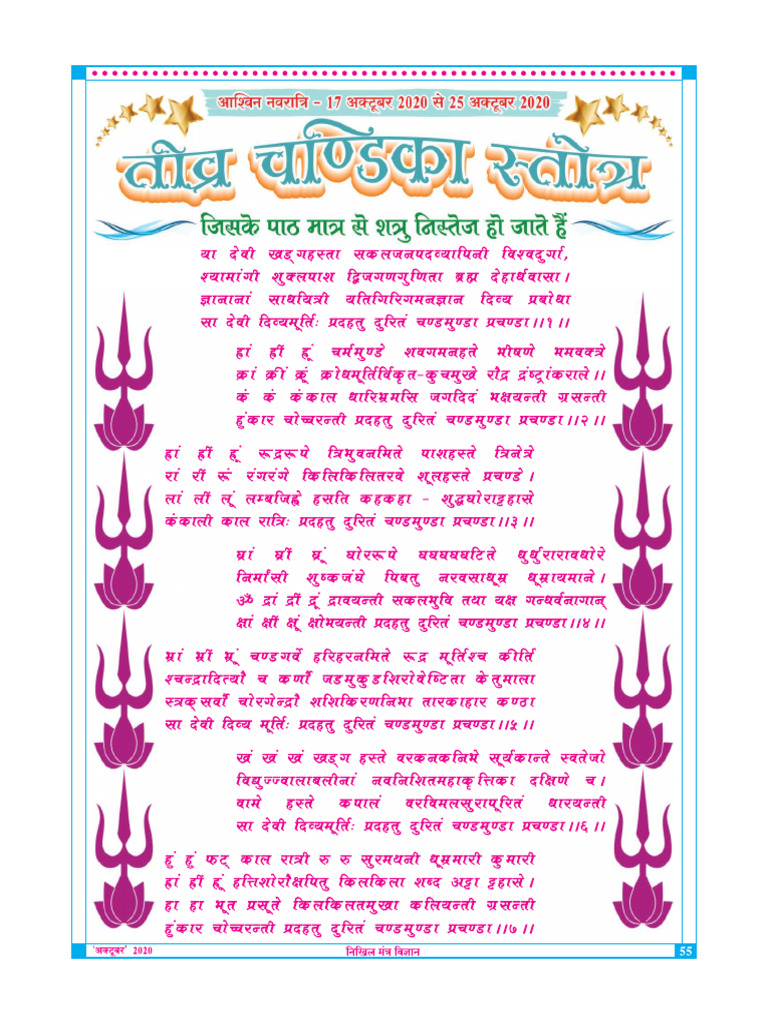 आश्विन नवरात्रि - 17 अक्टूबर 2020 से 25 अक्टूबर 2020
तीव्र चण्डिका स्तोत्र
जिसके पाठ मात्र से शत्रु निस्तेज हो जाते हैं
या देवी खड्गहस्ता सकलजनपदव्यापिनी विश्वदुर्गा,
श्यामांगी शुक्लपाश द्विजगणगुणिता ब्रह्म देहार्धवासा।
ज्ञानानां साधयित्री यतिगिरिगमनज्ञान दिव्य प्रबोधा
सा देवी दिव्यमूर्तिः प्रदहतु दुरितं चण्डमुण्डा प्रचण्डा।।१।।
ह्रां ह्रीं ह्रूं चर्ममुण्डे शवगमनहते भीषणे भमवक्त्रे
क्रां क्रीं क्रूं क्रोधमूर्तिर्विकृत-कुचमुखे रौद्र द्रंष्ट्रांकराले।।
कं कं कंकाल धारिभ्रमसि जगदिदं भक्षयन्ती ग्रसन्ती
हुंकार चोच्चरन्ती प्रदहतु दुरितं चण्डमुण्डा प्रचण्डा।।२।।
ह्रां ह्रीं ह्रूं रूद्ररूपे त्रिभुवनमिते पाशहस्ते त्रिनेत्रे
रां रीं रूं रंगरंगे किलिकिलितरवे शूलहस्ते प्रचण्डे।
लां लीं लूं लम्बजिह्वे हसति कहकहा - शुद्धघोराट्टहासे
कंकाली काल रात्रिः प्रदहतु दुरितं चण्डमुण्डा प्रचण्डा।।३।।
घ्रां घ्रीं घ्रूं घोररूपे घघघघघटिते धुर्धुरारावधोरे
निर्मांसी शुष्कजंघे पिबतु नरवसाधूम्र धूम्रायमाने।
ॐ द्रां द्रीं द्रूं द्रावयन्ती सकलभुवि तथा यक्ष गन्धर्वनागान्
क्षां क्षीं क्षूं क्षोभयन्ती प्रदहतु दुरितं चण्डमुण्डा प्रचण्डा।।४।।
भ्रां भ्रीं भ्रूं चण्डगर्वे हरिहरनमिते रूद्र मूर्तिश्च कीर्ति
श्चन्द्रादित्यौ च कर्णौ जडमुकुडशिरोवेष्टिता केतुमाला
स्त्रक्सर्वौ चोरगेन्द्रौ शशिकिरणनिभा तारकाहार कण्ठा
सा देवी दिव्य मूर्तिः प्रदहतु दुरितं चण्डमुण्डा प्रचण्डा।।५।।
खं खं खं खड्ग हस्ते वरकनकनिभे सूर्यकान्ते स्वतेजो
विद्युज्ज्वालाबलीनां नवनिशितमहाकृत्तिका दक्षिणे च।
वामे हस्ते कपालं वरविमलसुरापूरितं धारयन्ती
सा देवी दिव्यमूर्तिः प्रदहतु दुरितं चण्डमुण्डा प्रचण्डा।।६।।
हुं हुं फट् काल रात्री रु रु सुरमथनी धूम्रमारी कुमारी
ह्रां ह्रीं ह्रूं हत्तिशोरौक्षपितु किलकिला शब्द अट्टा ट्टहासे।
हा हा भूत प्रसूते किलकिलतमुखा कलियन्ती ग्रसन्ती
हुंकार चोच्चरन्ती प्रदहतु दुरितं चण्डमुण्डा प्रचण्डा।।७।।
'अक्टूबर' 2020
निखिल मंत्र विज्ञान
55